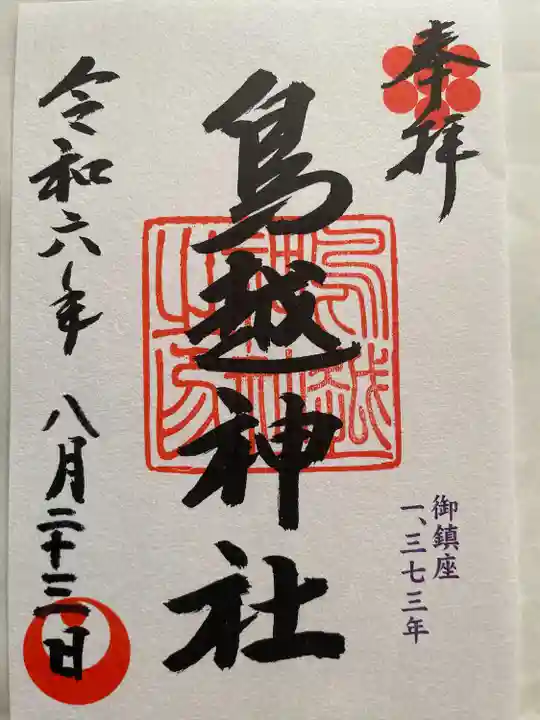 奉拝
鳥越神社
令和六年 八月二十三日
御鎮座
一、三七三年